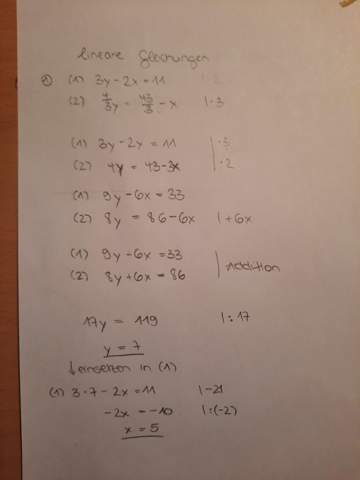 lineare Gleichungen
(1) 3y - 2x = 11
(2) 4/3y = 43/3 - x | · 3
(1) 3y - 2x = 11 | · 3
(2) 4y = 43 - 3x | · 2
(1) 9y - 6x = 33
(2) 8y = 86 - 6x | + 6x
(1) 9y - 6x = 33
(2) 8y + 6x = 86 | Addition
17y = 119 | : 17
y = 7
↓ einsetzen in (1)
(1) 3 · 7 - 2x = 11 | - 21
-2x = -10 | : (-2)
x = 5